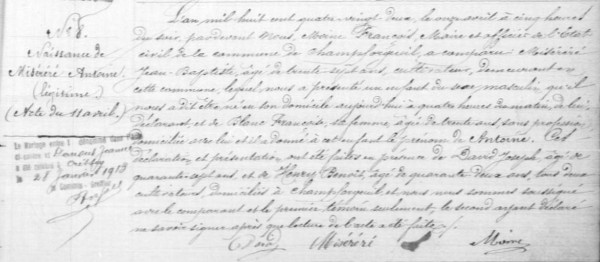 N° 8.
Naissance de
Miséréré Antoine
(légitime)
(Acte du 11 avril.)
28 Janvier 1913
L'an mil huit cent quatre vingt deux, le onze avril à cinq heures
du soir, pardevant Nous, Moine François, Maire et officier de l'Etat
civil de la commune de Champforgeuil, a comparu Miséréré
Jean-Baptiste, âgé de trente sept ans, cultivateur, demeurant en
cette commune, lequel nous a présenté un enfant du sexe masculin qu'il
nous a dit être né en son domicile aujourd'hui à quatre heures du matin, de lui
déclarant et de Blanc Françoise, sa femme, âgée de trente ans, sans profession,
domiciliée avec lui et il a donné à cet enfant le prénom de Antoine. Ces
déclaration et présentation ont été faites en présence de David Joseph, âgé de
quarante sept ans et de Henry Benoit, âgé de quarante deux ans, tous deux
cultivateurs, domiciliés à Champforgeuil et nous nous sommes soussigné
avec le comparant et le premier témoin seulement, le second ayant déclaré
ne savoir signer après que lecture de l'acte a été faite.
David Miséréré Moine